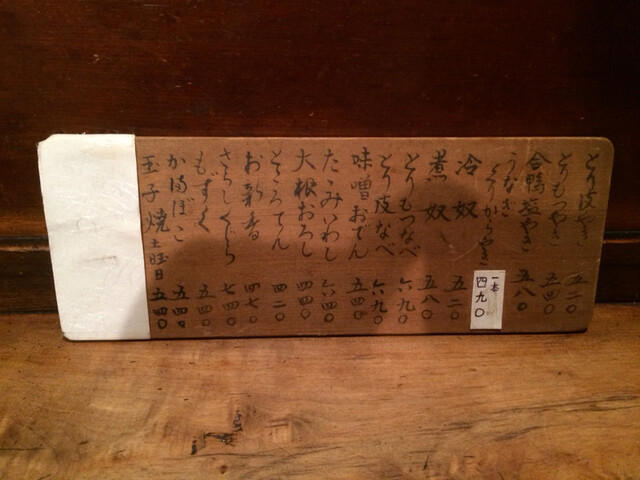 とり皮やき 五二〇
とりもつやき 五四〇
合鴨塩やき 五八〇
うなぎ
くりからやき 一本 四九〇
冷奴 五二〇
煮奴 五八〇
とりもつなべ 六九〇
とり皮なべ 六九〇
味噌おでん 五四〇
たゝみいわし 六四〇
大根おろし 四四〇
ところてん 四二〇
お新香 四七〇
さらしくじら 七四〇
もずく 五四〇
かまぼこ 五四〇
玉子焼 土旺日 五四〇